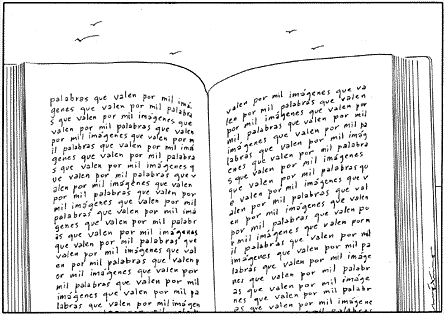 palabras que valen por mil imá
genes que valen por mil palabra
s que valen por mil imágenes que
valen por mil palabras que valen
por mil imágenes que valen por m
il palabras que valen por mil imá
genes que valen por mil palabra
s que valen por mil imágenes q
ue valen por mil palabras que v
alen por mil imágenes que valen
por mil palabras que valen por
mil imágenes que valen por mil
palabras que valen por mil imá
genes que valen por mil palabr
as que valen por mil imágenes
que valen por mil palabras que
valen por mil imágenes que val
en por mil palabras que valen p
or mil imágenes que valen por
mil palabras que valen por mil
imágenes que valen por mil pa
labras que valen por mil imágen
valen por mil imágenes que va
len por mil palabras que valen
por mil imágenes que valen por
mil palabras que valen por mil
imágenes que valen por mil pa
labras que valen por mil imág
enes que valen por mil palabra
s que valen por mil imágenes
que valen por mil palabras qu
e valen por mil imágenes que v
alen por mil palabras que val
en por mil imágenes que valen
por mil palabras que valen po
r mil imágenes que valen por m
il palabras que valen por mil
imágenes que valen por mil pa
labras que valen por mil imág
enes que valen por mil palabr
as que valen por mil imágene
nes que valen por mil palabr
as que valen por mil imágene